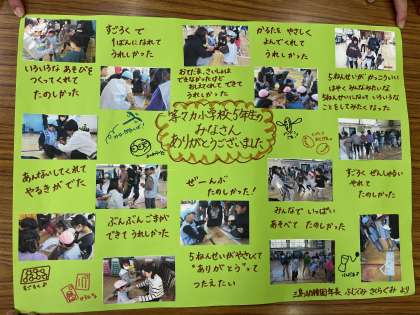 すごろくで
1ばんになれて
うれしかった
かるたを やさしく
よんでくれて
うれしかった
いろいろな あそびを
つくってくれて
たのしかった
さいしょは
できなかったけど
おしえてくれて できて
うれしかった
5ねんせいが かっこういい
はやく みんなみたいな
5ねんせいになって いろいろな
ことをしてみたくなった
小学校5年生の
みなさん
ありがとうございました
あんないしてくれて
やるきがでた
ぜーんぶ
たのしかった!
すごろく ぜんしゅうも
やれて
たのしかった
ぶんぶんごまが
できて うれしかった
みんなで いっぱい
あそべて たのしかった
5ねんせいがやさしくて
"ありがとう"って
つたえたい
すごろく
幼稚園年長 ふじぐみ さくらぐみ より